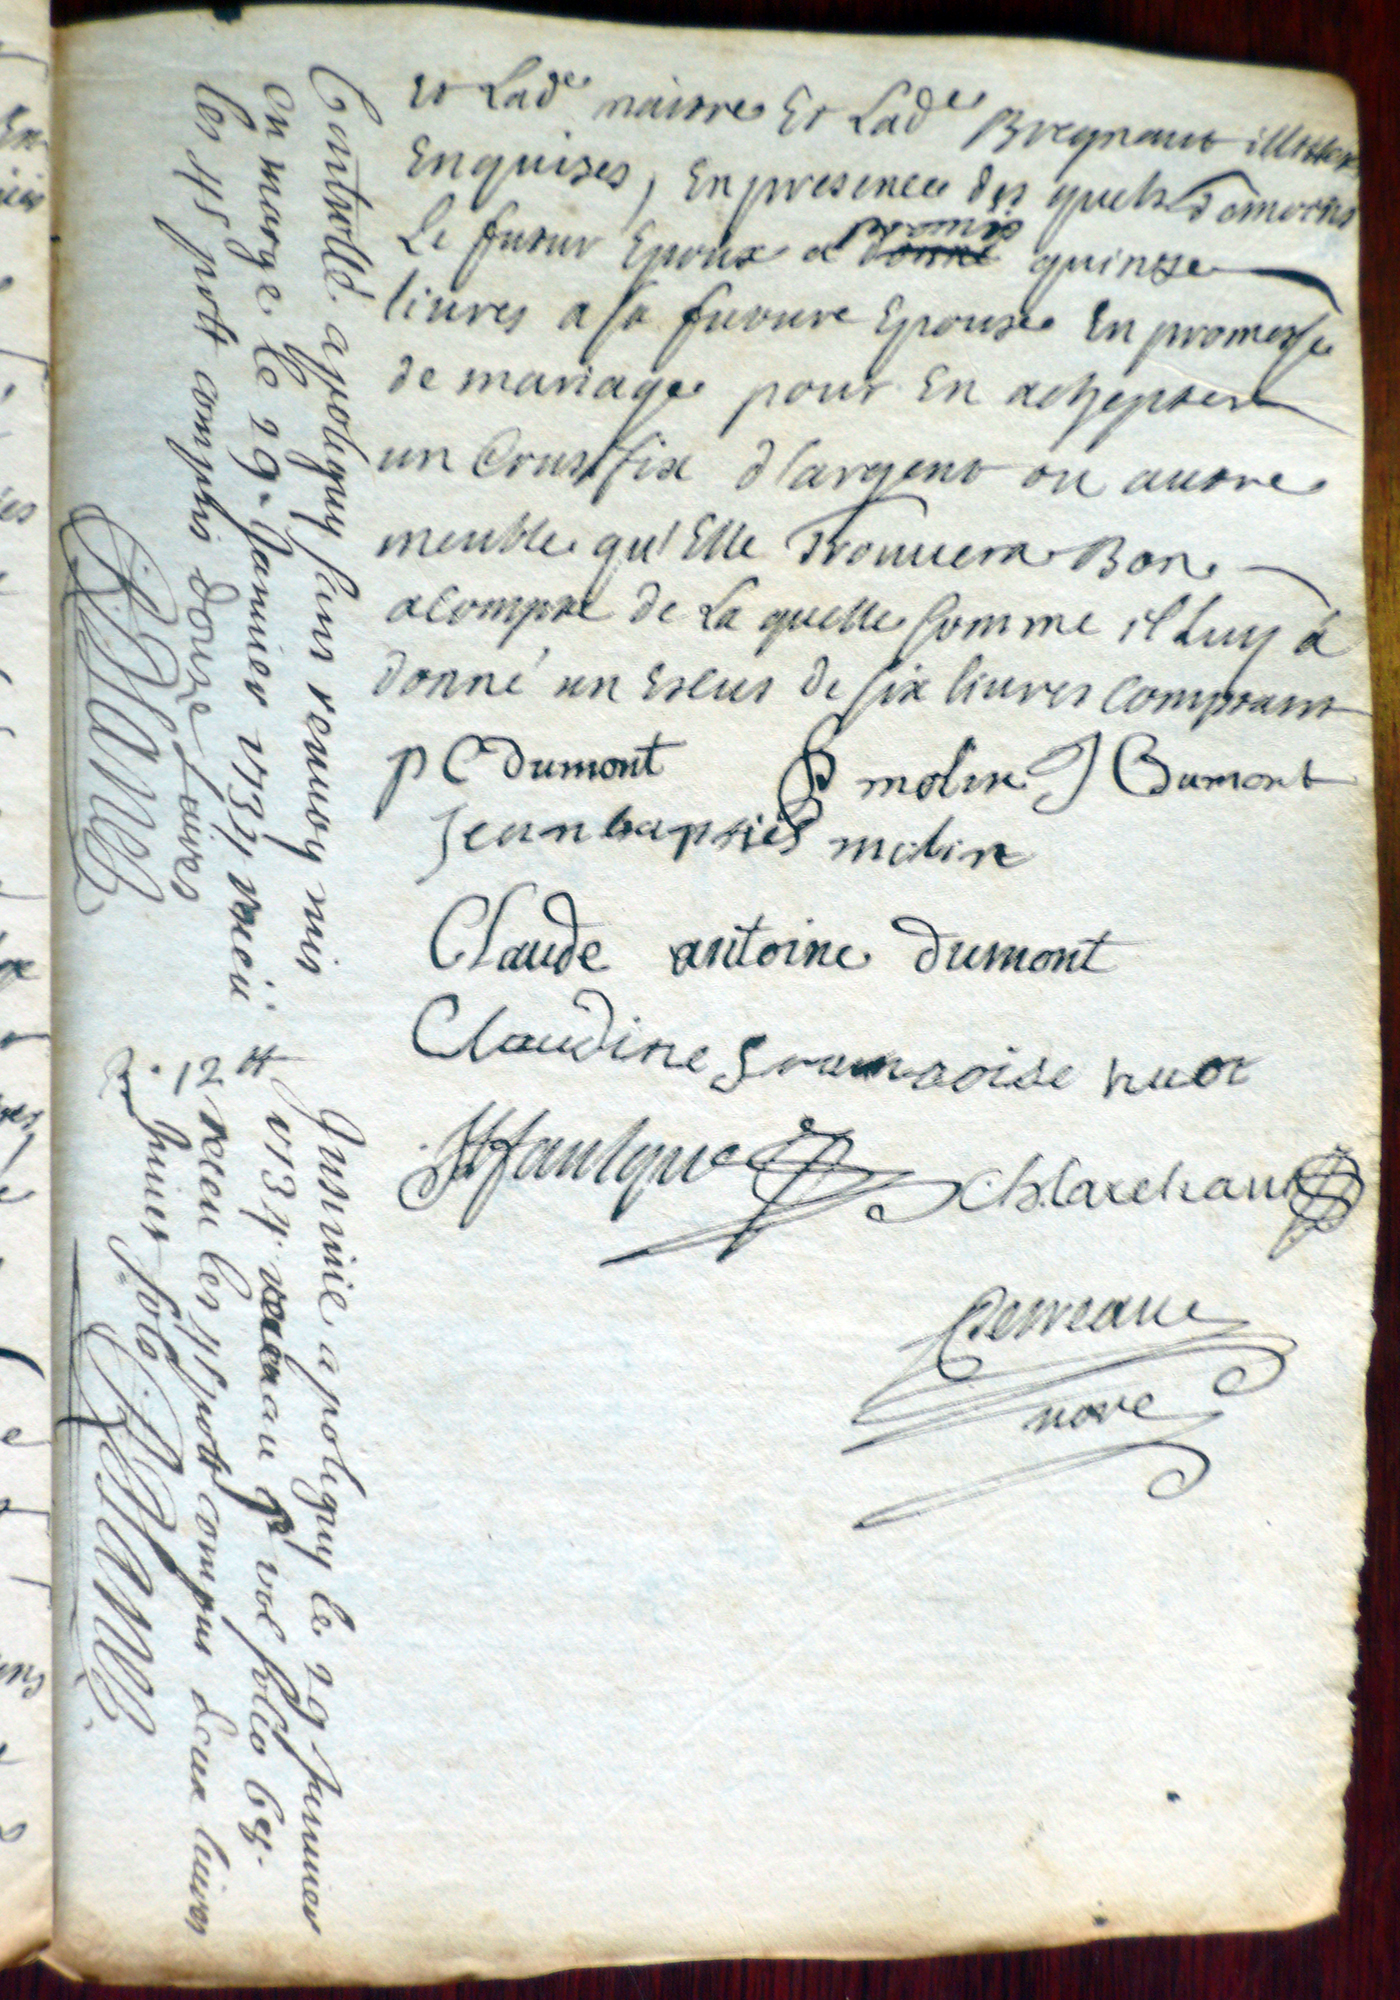 et Lad.e naitre Et Lad.e Bregnaut illitteré
Enquises, En presence des quels Temoins
Le futur Epoux a promis donné quinze
livres a sa future Epouse En promesse
de mariage pour En achepter
un Crusifix d'argent ou autre
meuble qu'Elle Trouvera Bon
acompte de La quelle somme il Luy à
donné un Escus de six livres Comptant
p C Dumont P molin J C Dumont
Jean baptiste molin
Claude antoine Dumont
Claudine francoise huot
faulque Marchant
nore
Controllé a poligny sans renvoy nis
en marge le 29. Janvier 1734 receu
les 4 s pour compris Douze Livres
Insinué a poligny le 29 Janvier
1734 receu au vol folio 69.
12 receu les 4 s pour compris deux livres